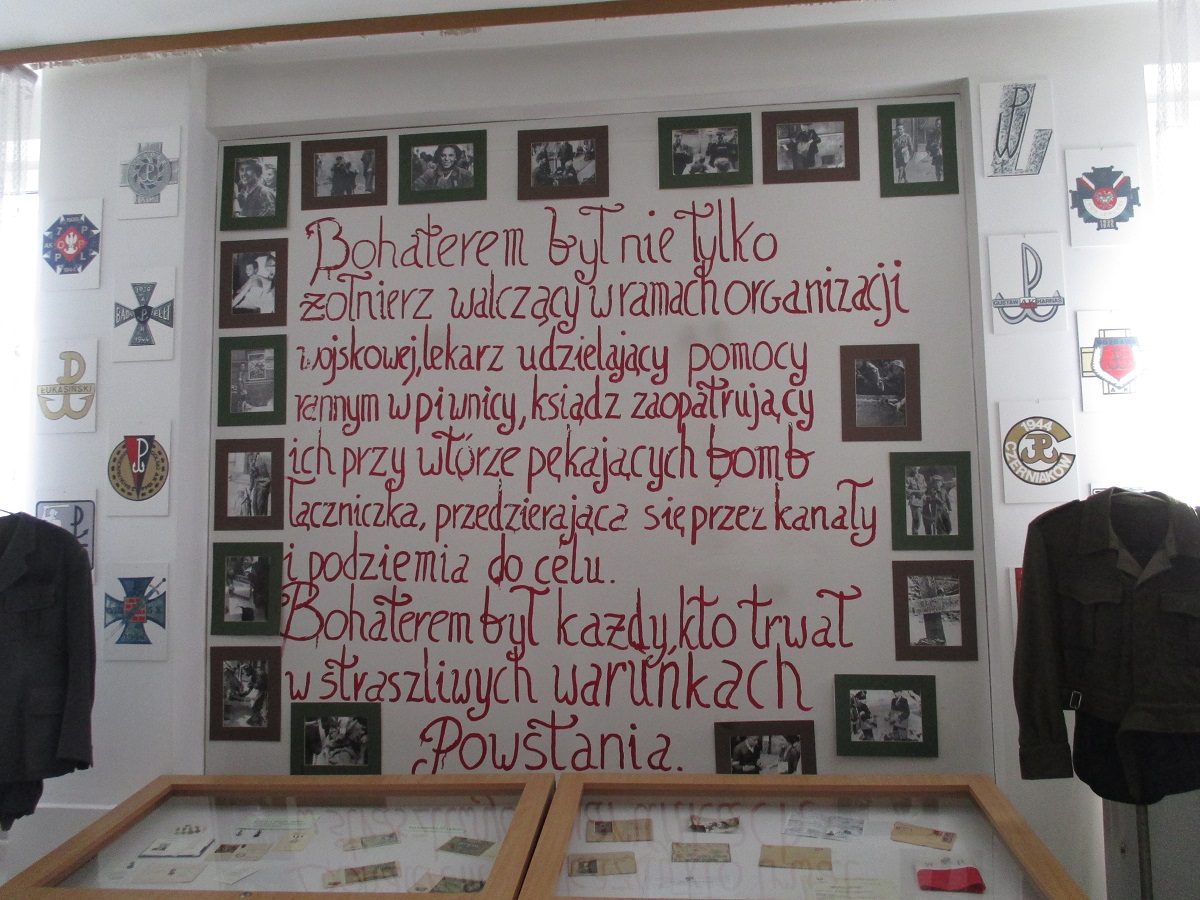 Bohaterem był nie tylko
żołnierz walczący w ramach organizacji
wojskowej, lekarz udzielający pomocy
rannym w piwnicy, ksiądz zaopatrujący
ich przy wtórze pękających bomb
łączniczka, przedzierająca się przez kanały
i podziemia do celu.
Bohaterem był każdy, kto trwał
w straszliwych warunkach
Powstania.
ŁUKASIŃSKI
1944
GUSTAW HARNAŚ
1944
CZERNIAKÓW